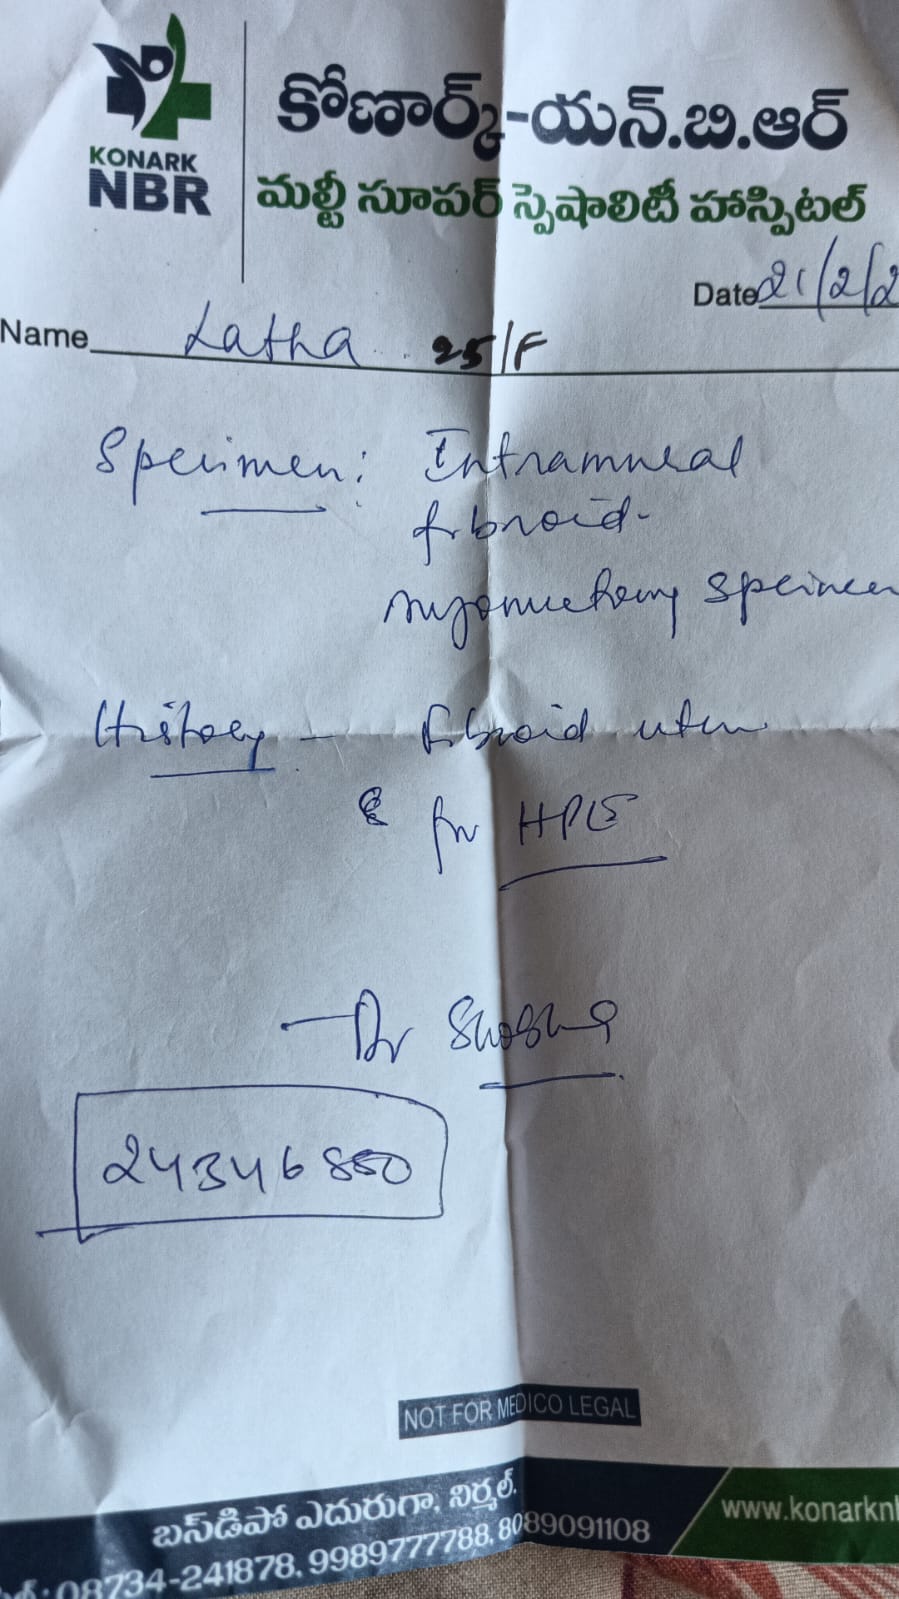 KONARK
NBR
కోణార్క్-యన్.బి.ఆర్
మల్టీ సూపర్ స్పెషాలిటీ హాస్పిటల్
Date 21/2/2
Name Latha 25/F
Specimen: Intramural
fibroid-
myomectomy specimen
History - fibroid uterus
for HPE
- Dr Shobha
24346850
NOT FOR MEDICO LEGAL
బస్‌డిపో ఎదురుగా, నిర్మల్.
08734-241878, 9989777788, 8089091108
www.konarknb